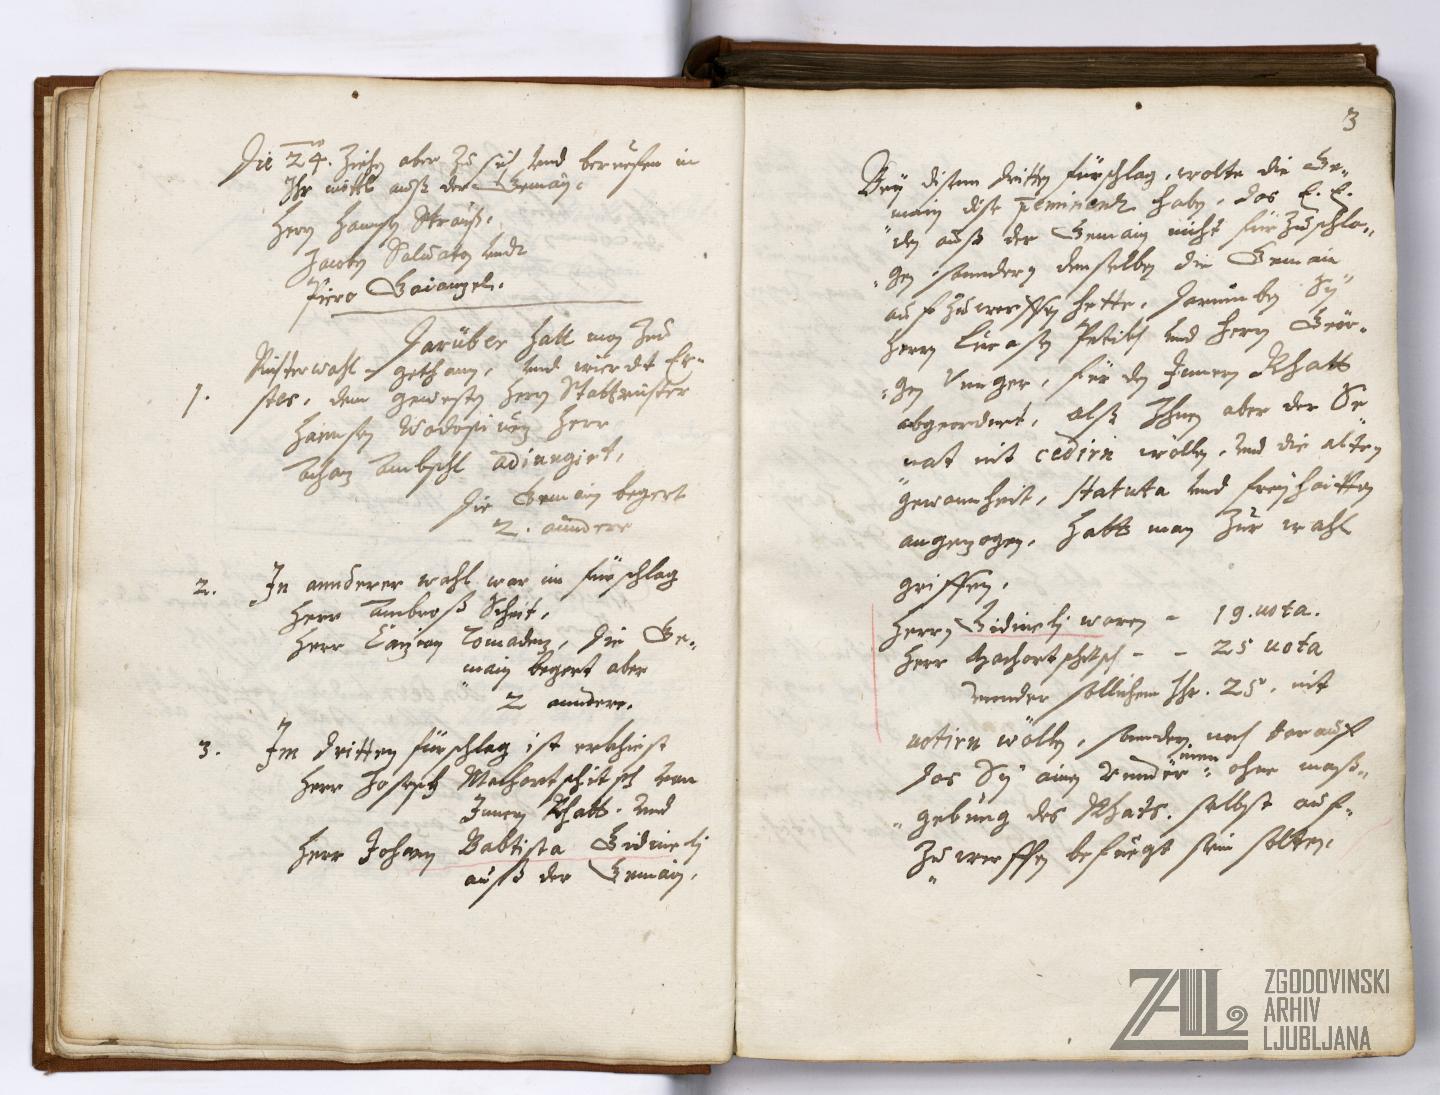 Die 24. Ziehen aber zu sich und berueffen in
Ihr mittl auß der Gemain.
Herrn Hannsen Strauß.
Jacoben Saluator und
Piero Gaianzel.
Darüber hatt man zur
Richterwahl gethann, und wierdt Er-
1. stes, dem gewesten Herrn Stattrichter
Hannsen Wodopiuez Herr
Achaz Ambschl adiungirt,
Die Gemain begert
2. anndere
2. In annderer wahl war im fürschlag
Herr Ambroß Scheit,
Herr Tomadez, die Ge-
main begert aber
2 anndere.
3. Im dritten fürschlag ist erkhiest
Herr Joseph Machortschitsch vom
Innern Rhatt. und
Herr Johann Babtista Gidinelj
auß der Gemain.
3
Bey disem dritten fürschlag, wolte die Ge-
main dise haben, das E. E.
den auß der Gemain nicht fürzuschla-
gen sonndern denselben die Gemain
aufzuwerffen hette, darumben Sy
Herrn Lucasen und Herrn Geör-
gen Unnger, für den Innern Rhatt
abgeordnet, alß Ihnen aber der Se
nat nit cedirn wöllen, und die alten
gewonnheit, Statuta und freyhaitten
angezogen, hatt man zur wahl
griffen,
Herrn Gidinelj waren - 19. uota.
Herr Machortschitsch - - 25 uota
unnder sollichem Ihr. 25. nit
uotirn wöllen, sonndern noch darauf
inen
das Sy ainen ohne maß-
gebung des Rhats. selbst auf-
zuwerffen befüegt sein solten.
ZAL
ZGODOVINSKI
ARHIV
LJUBLJANA